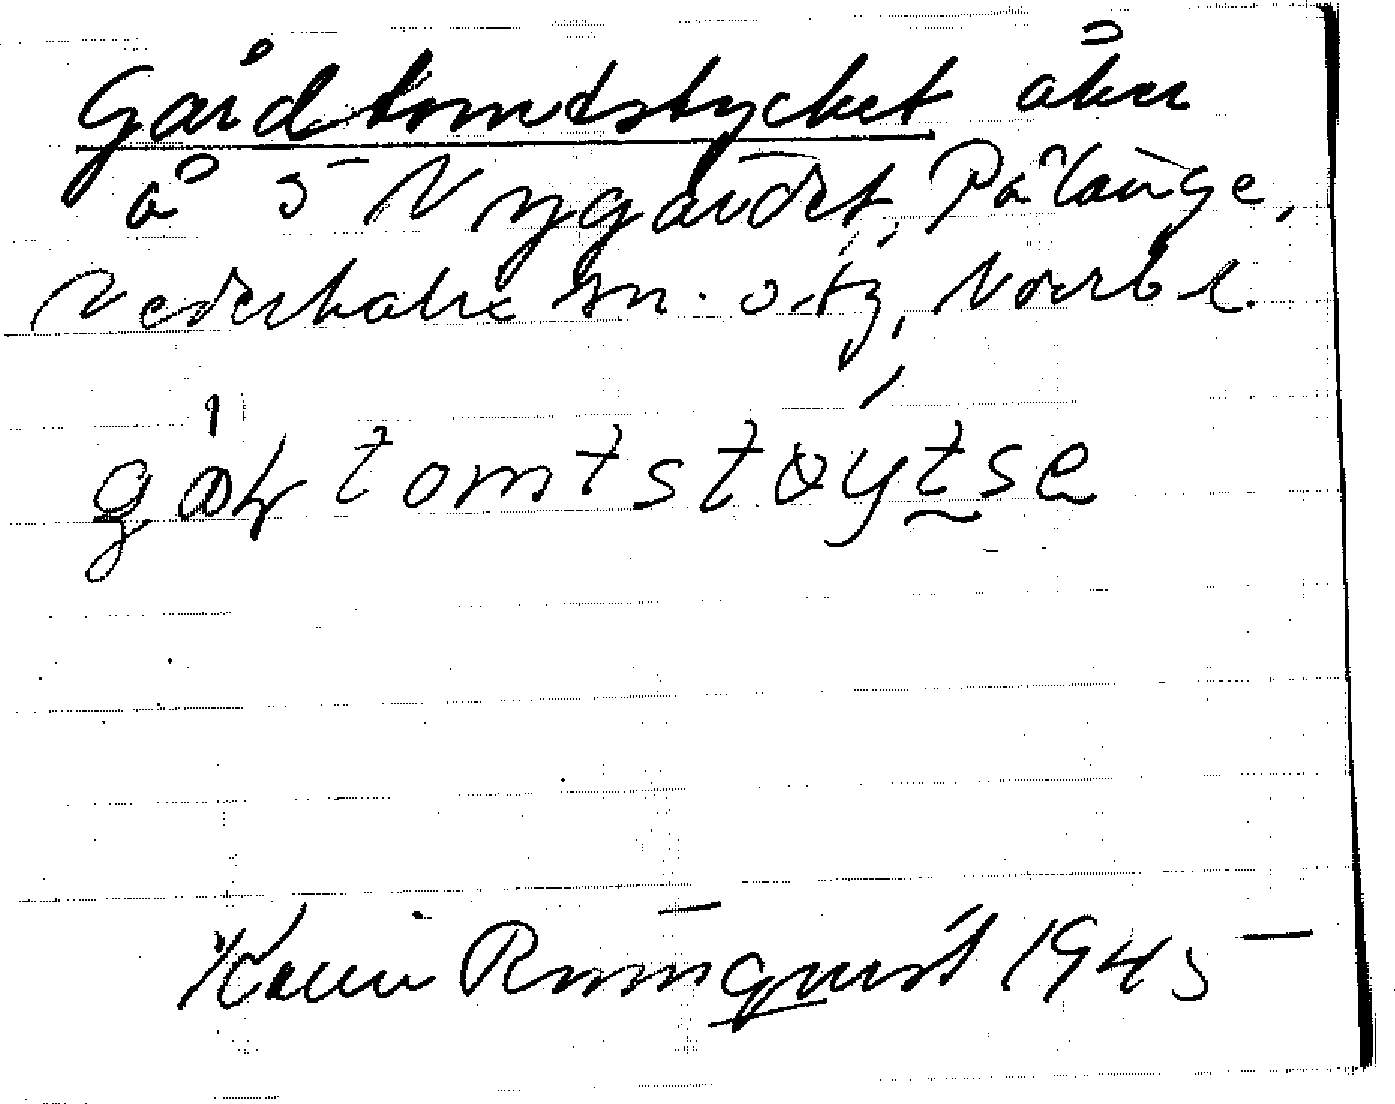 Gårdtomtstycket åker
å 5 Nygårdet, Pålänge,
Nederkalix sn. o. tg, Norrb l.
gåɽtomtstøytse
Karin Runnquist 1945